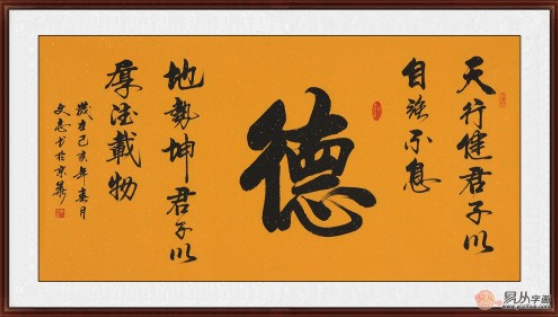 天行健君子以
自強不息
德
地勢坤君子以
厚德載物
歲在己亥年春月
文志书於京華
易从字画